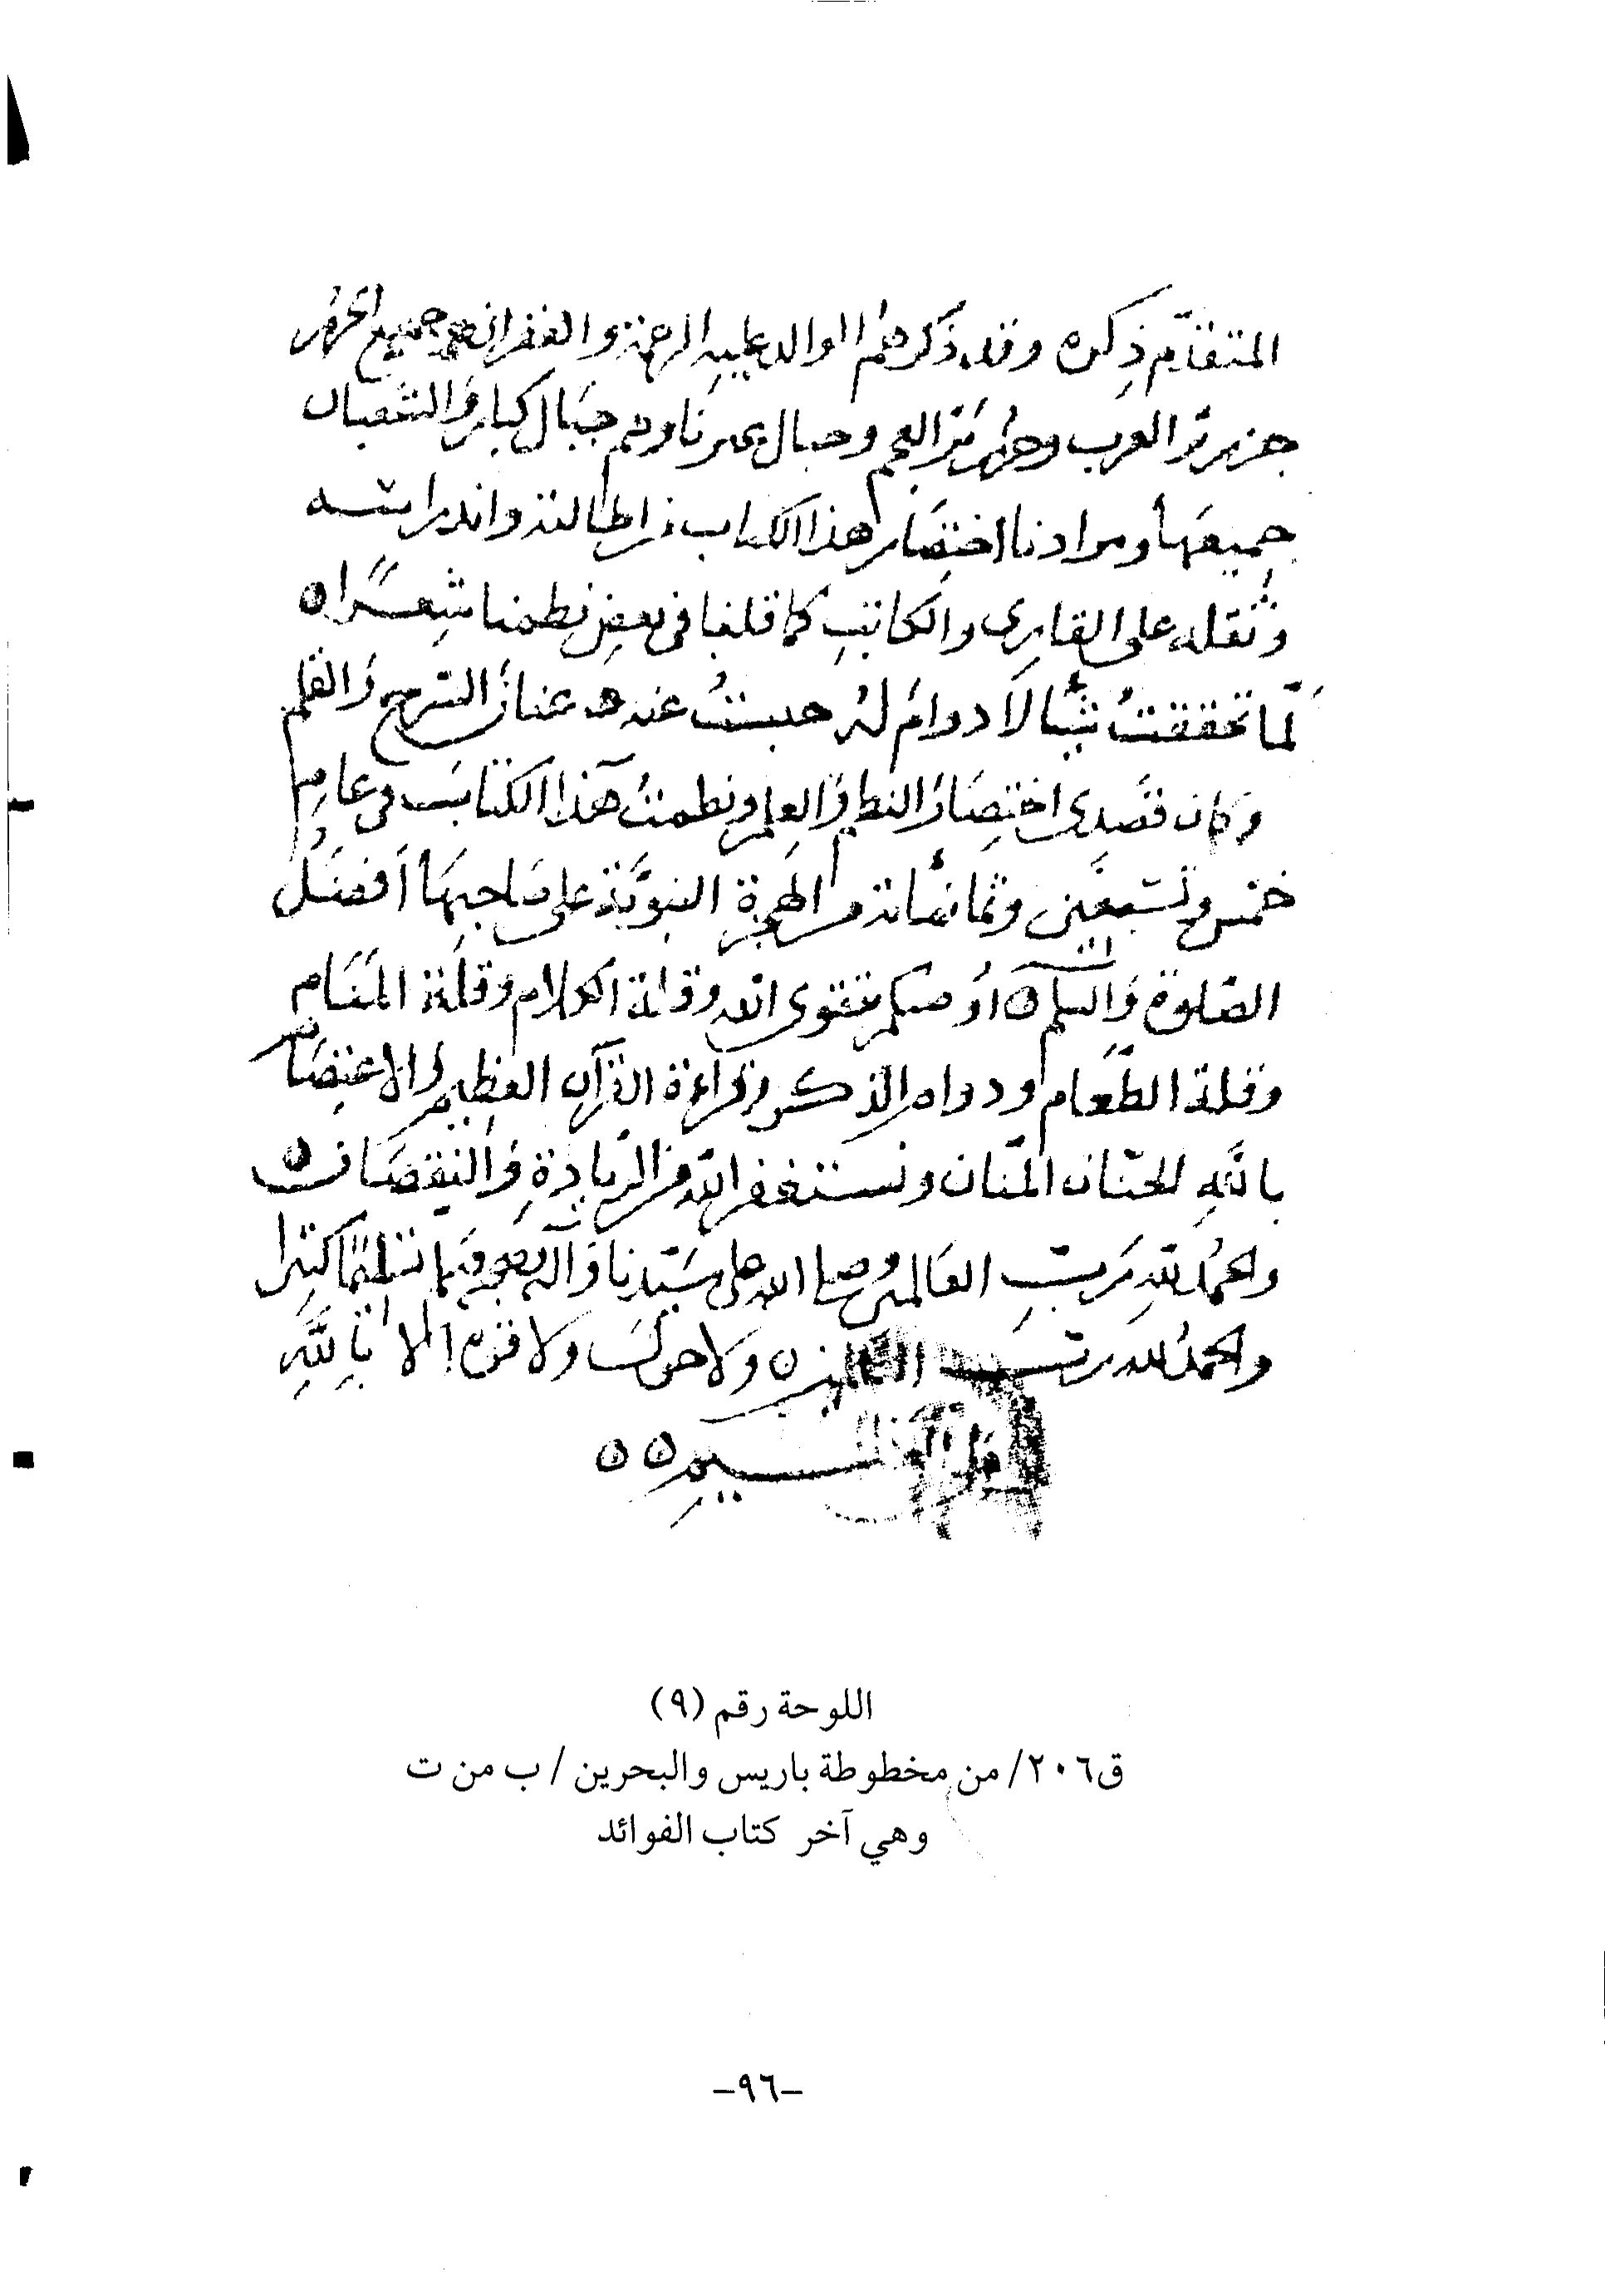 المتقدّم ذِكره وقد ذكرهم الوالد عليه الرحمة والغفران جميع
جزيرة العرب وجزيرة العجم وجبال بحرنا وبهم جبال كبار والشعبان
جميعها ومرادنا اختصار هذا الكتاب من اطالته واندراسه
وثقله على القارِى والكاتبِ كما قلنا فى بعضِ نظمنا شِعرًا ه
لَمّا تحققتُ شيئا لا دوامَ لهُ حبستُ عنه عنانَ السّرج وَالقلم
وكان قصدِى اختِصارَ النطق والعِلم ونظمتُ هذا الكتابَ فى عامِ
خمس وتسعين وثمانمائة من الهجرة النبويّة على صَاحِبهَا أفضلُ
الصّلوة وَالسلم ه أوصيكم بتقوى الله وقلة الكلام وقلّة المَنَام
وقلة الطّعام ودوام الذكر وقراءة القرآن العظِيم والاعتِصَام
باللهِ الحنّان المنّان ونستغفر الله من الزّيادةِ وَالنقصَان ه
والحمدُ للهِ رَبّ العَالمين وصلى الله على سيّدنا وآله وصحبه وسلم تسليمًا كثيرا
والحمدُ لله ربّ العالمين ه ولا حول ولا قوة الا بِاللهِ
العلى العظيم ه ه
اللوحة رقم (٩)
ق٢٠٦/ من مخطوطة باريس والبحرين / ب من ت
وهي آخر كتاب الفوائد
–٩٦–